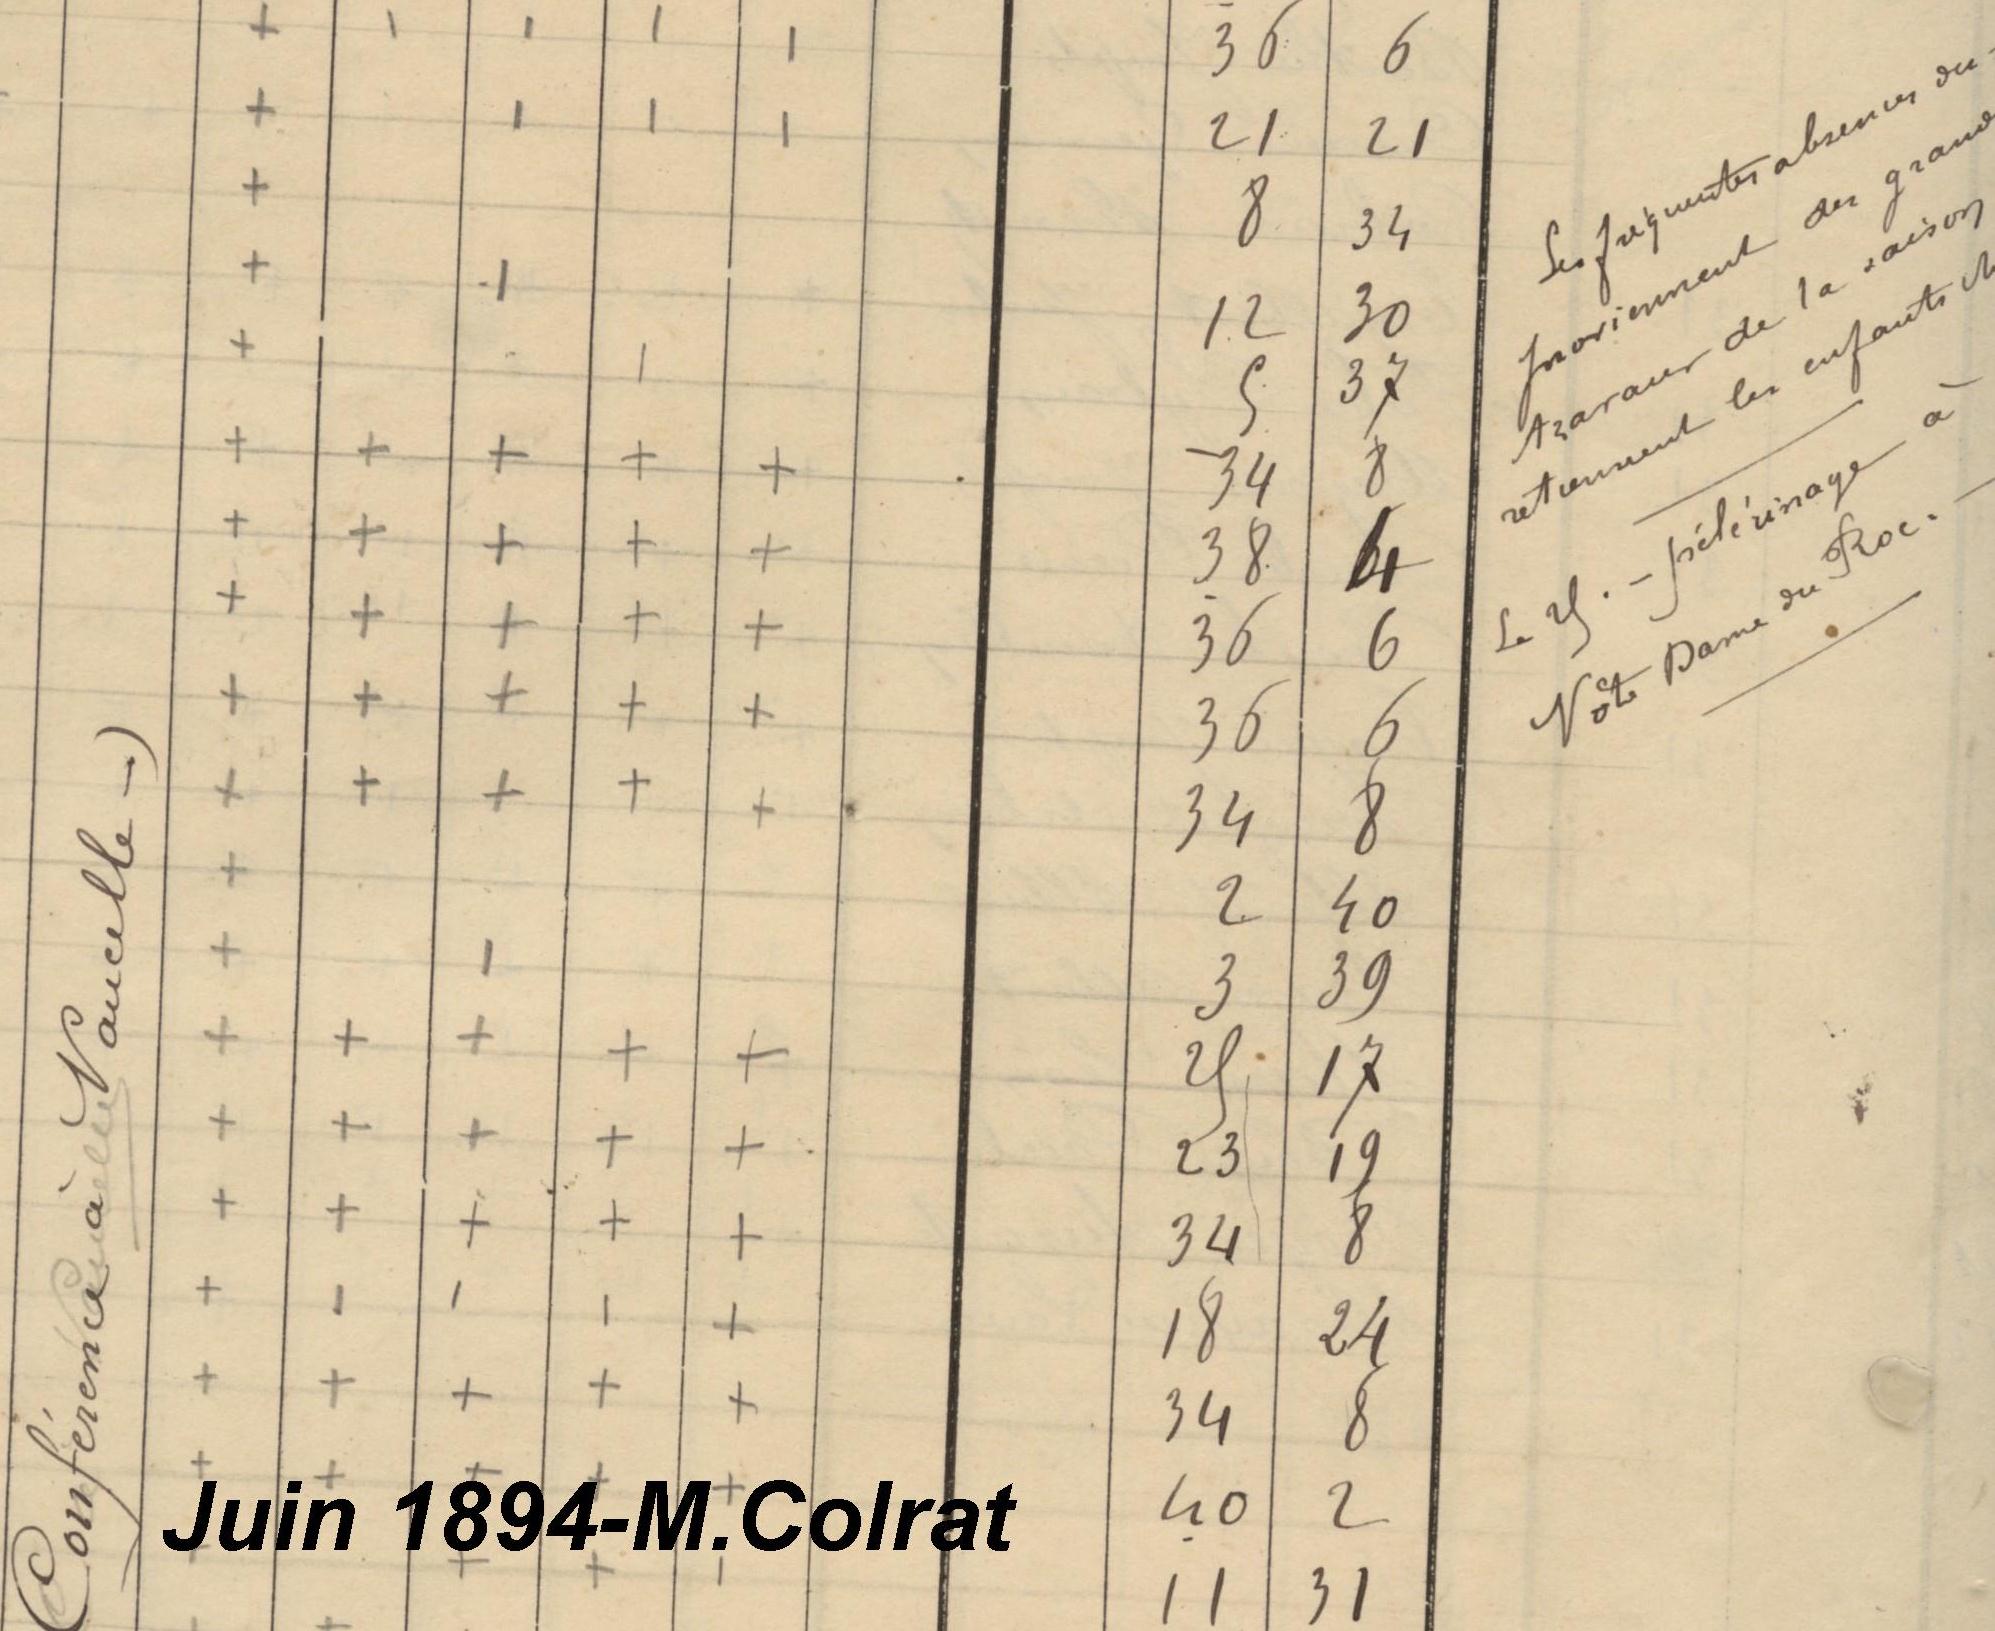 36 6
21 21
8 34
12 30
5 37
34 8
38 4
36 6
36 6
34 8
2 40
3 39
25 17
23 19
34 8
18 24
34 8
40 2
11 31
Les fréquentes absences du
proviennent des grands
travaux de la saison
retiennent les enfants
Le 25. - pélérinage à
Notre Dame du Roc. -
Conférence à Naucelle -)
Juin 1894-M.Colrat